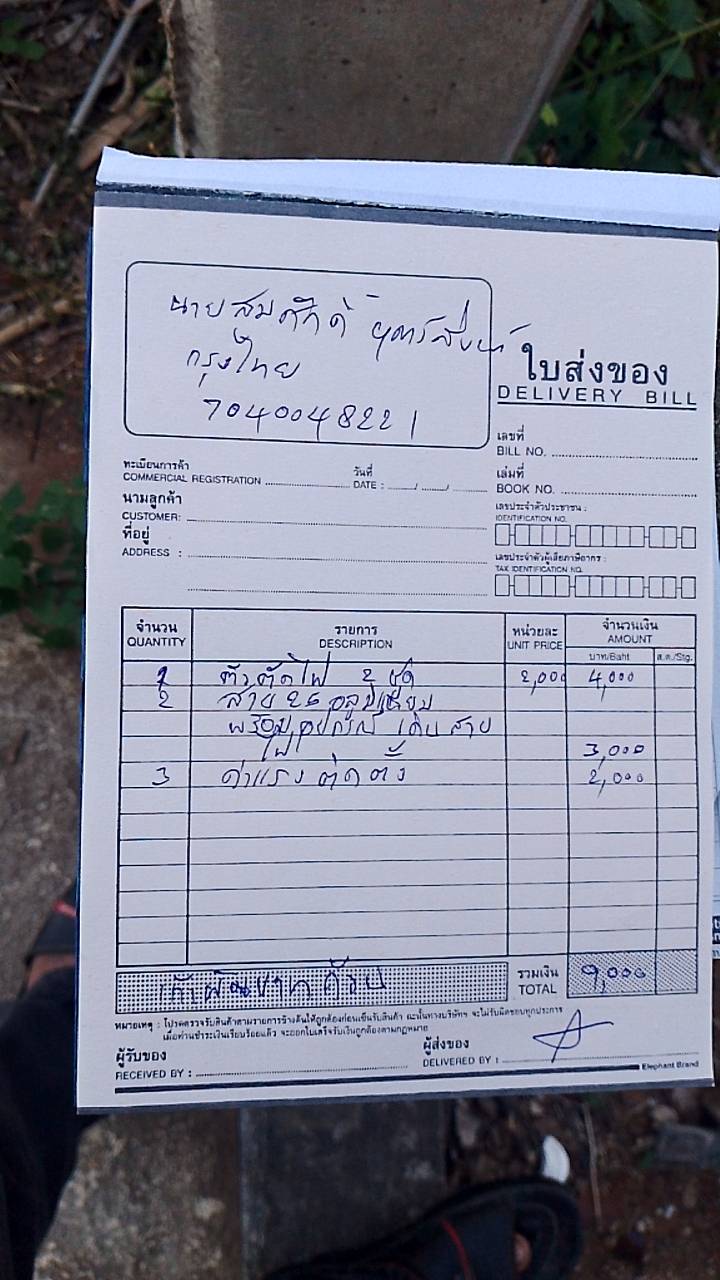 นายสมศักดิ์
กรุงไทย
7040048221
ใบส่งของ
DELIVERY BILL
เลขที่
BILL NO.
ทะเบียนการค้า
COMMERCIAL REGISTRATION
วันที่
DATE :
เล่มที่
BOOK NO.
นามลูกค้า
CUSTOMER:
เลขประจำตัวประชาชน :
IDENTIFICATION NO.
ที่อยู่
ADDRESS :
เลขประจำตัวผู้เสียภาษีอากร :
TAX IDENTIFICATION NO.
จำนวน รายการ หน่วยละ จำนวนเงิน
QUANTITY DESCRIPTION UNIT PRICE AMOUNT
บาท/Baht ส.ต./Stg.
1 ตัวตัดไฟ 2 ชุด 2,000 4,000
2 สาย 25 อลูมิเนียม
พร้อมอุปกรณ์ เดินสาย
ไฟ 3,000
3 ค่าแรง ติดตั้ง 2,000
เก้าพันบาทถ้วน รวมเงิน 9,000
TOTAL
หมายเหตุ : โปรดตรวจรับสินค้าตามรายการข้างต้นให้ถูกต้องก่อนเซ็นรับสินค้า ฉะนั้นทางบริษัทฯ จะไม่รับผิดชอบทุกประการ
เมื่อท่านชำระเงินเรียบร้อยแล้ว จะออกใบเสร็จรับเงินถูกต้องตามกฎหมาย
ผู้รับของ
RECEIVED BY :
ผู้ส่งของ
DELIVERED BY :
Elephant Brand